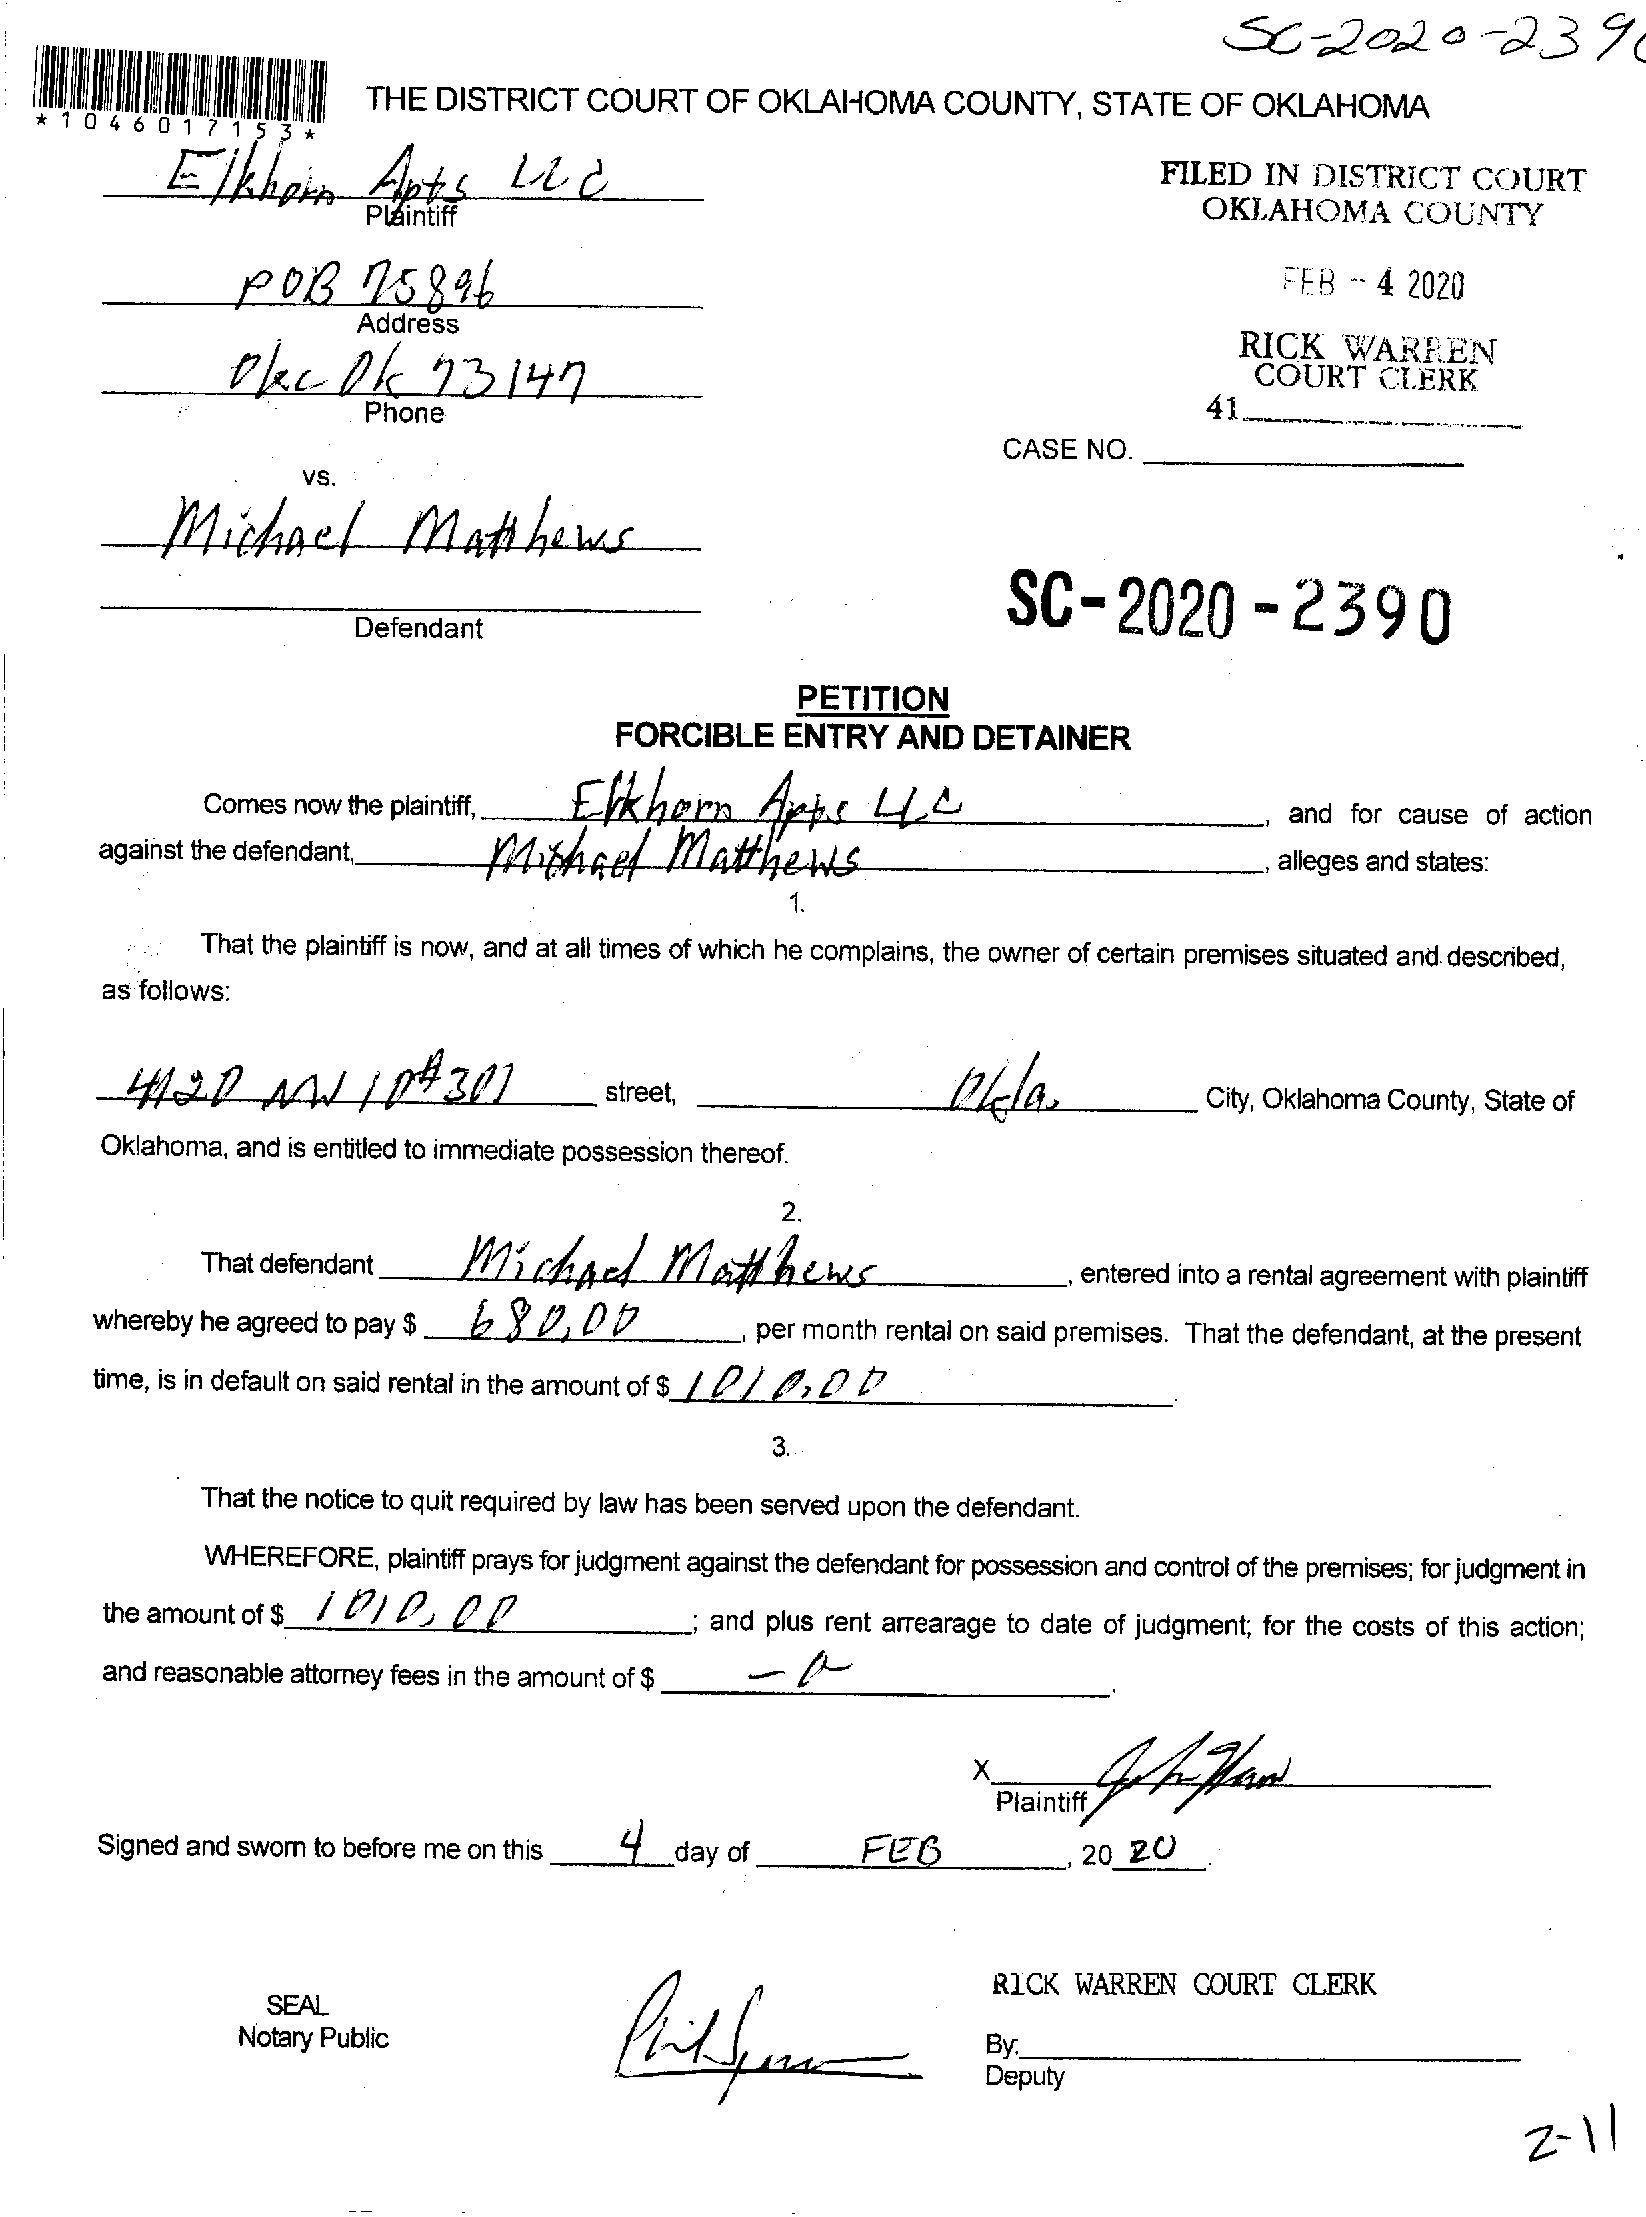 SC-2020-239
*1046017153*
THE DISTRICT COURT OF OKLAHOMA COUNTY, STATE OF OKLAHOMA
Elkhorn Apts LLC
Plaintiff
FILED IN DISTRICT COURT
OKLAHOMA COUNTY
POB 75896
Address
FEB - 4 2020
Okc Ok 73147
Phone
RICK WARREN
COURT CLERK
41
CASE NO.
vs.
Michael Matthews
Defendant
SC-2020-2390
PETITION
FORCIBLE ENTRY AND DETAINER
Comes now the plaintiff, Elkhorn Apts LLC, and for cause of action
against the defendant, Michael Matthews, alleges and states:
1.
That the plaintiff is now, and at all times of which he complains, the owner of certain premises situated and described,
as follows:
4120 NW 10 #301 street, Okla. City, Oklahoma County, State of
Oklahoma, and is entitled to immediate possession thereof.
2.
That defendant Michael Matthews, entered into a rental agreement with plaintiff
whereby he agreed to pay $ 680.00, per month rental on said premises. That the defendant, at the present
time, is in default on said rental in the amount of $ 1010.00.
3.
That the notice to quit required by law has been served upon the defendant.
WHEREFORE, plaintiff prays for judgment against the defendant for possession and control of the premises; for judgment in
the amount of $ 1010.00; and plus rent arrearage to date of judgment; for the costs of this action;
and reasonable attorney fees in the amount of $ -0-.
X
Plaintiff
Signed and sworn to before me on this 4 day of FEB, 20 20.
SEAL
Notary Public
RICK WARREN COURT CLERK
By:
Deputy
2-11